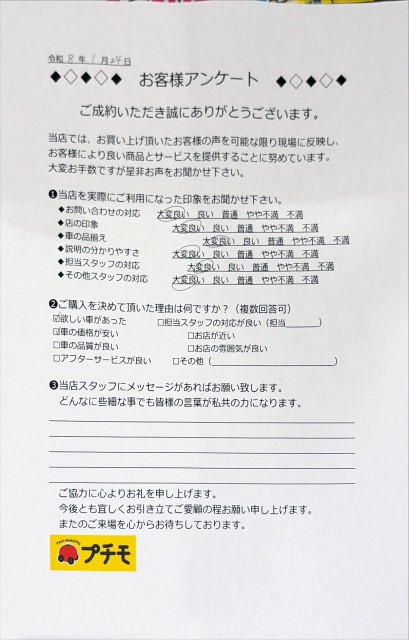 令和 8 年 1 月 24 日
◆◇◆◇◆ お客様アンケート ◆◇◆◇◆
ご成約いただき誠にありがとうございます。
当店では、お買い上げ頂いたお客様の声を可能な限り現場に反映し、
お客様により良い商品とサービスを提供することに努めています。
大変お手数ですが是非お声をお聞かせ下さい。
❶当店を実際にご利用になった印象をお聞かせ下さい。
◆お問い合わせの対応 大変良い 良い 普通 やや不満 不満
◆店の印象 大変良い 良い 普通 やや不満 不満
◆車の品揃え 大変良い 良い 普通 やや不満 不満
◆説明の分かりやすさ 大変良い 良い 普通 やや不満 不満
◆担当スタッフの対応 大変良い 良い 普通 やや不満 不満
◆その他スタッフの対応 大変良い 良い 普通 やや不満 不満
❷ご購入を決めて頂いた理由は何ですか？（複数回答可）
☑欲しい車があった □担当スタッフの対応が良い（担当______）
☑車の価格が安い □お店が近い
□車の品質が良い □お店の雰囲気が良い
□アフターサービスが良い □その他（____________________）
❸当店スタッフにメッセージがあればお願い致します。
どんなに些細な事でも皆様の言葉が私共の力になります。
ご協力に心よりお礼を申し上げます。
今後とも宜しくお引き立てご愛顧の程お願い申し上げます。
またのご来場を心からお待ちしております。
プチモ